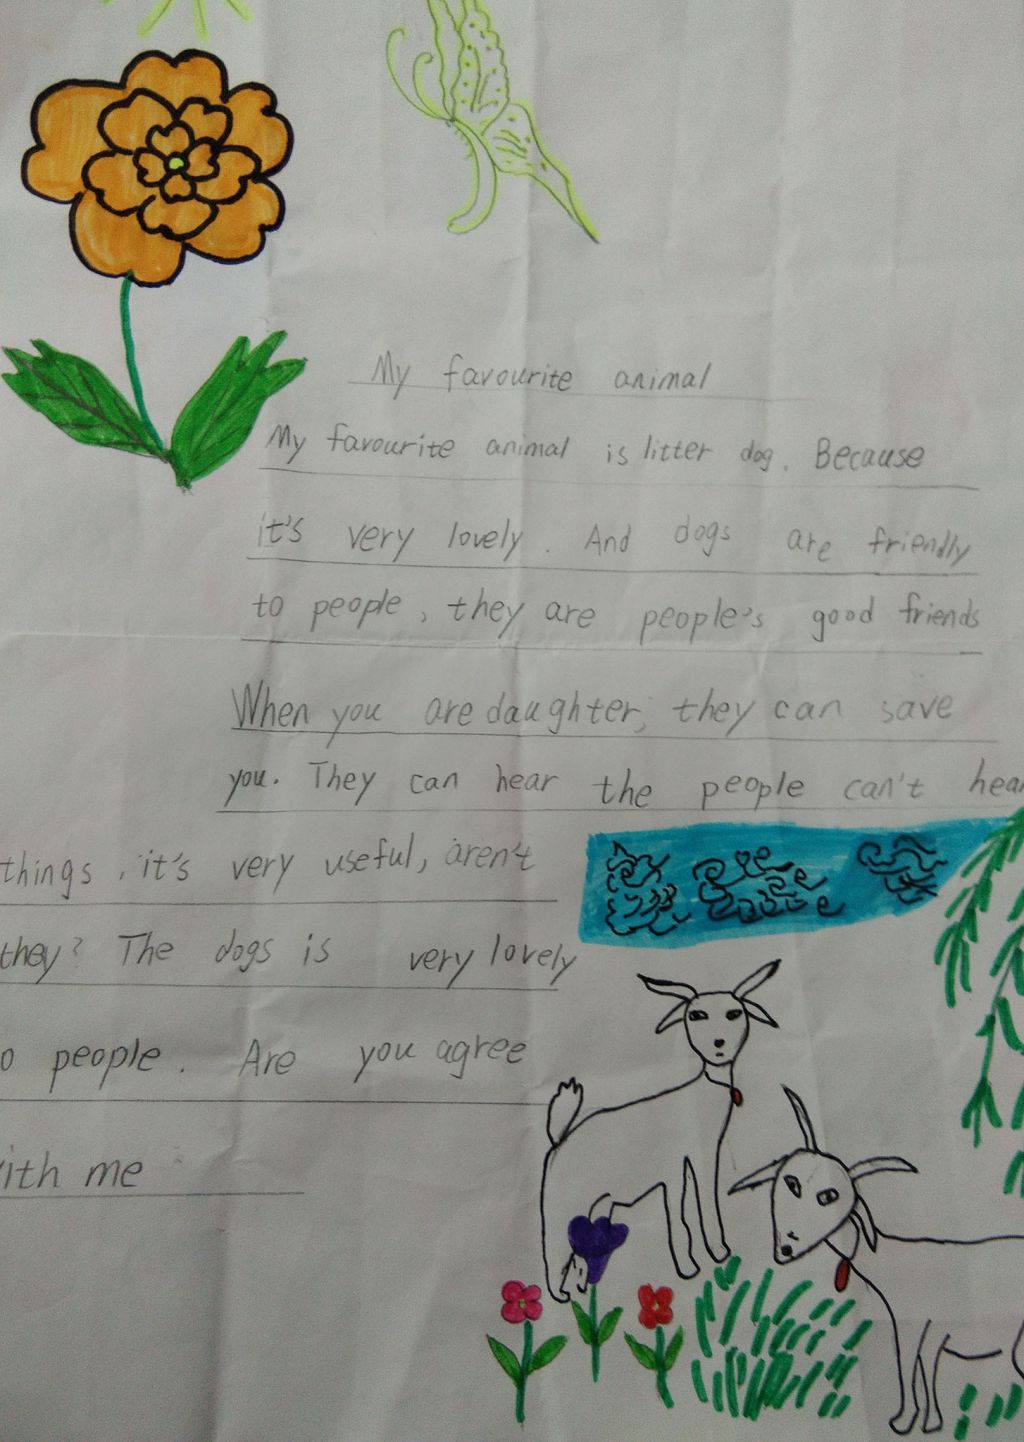 My favourite animal
My favourite animal is litter dog. Because
it's very lovely. And dogs are friendly
to people, they are people's good friends
When you are daughter, they can save
you. They can hear the people can't hear
things, it's very useful, aren't
they? The dogs is very lovely
o people. Are you agree
ith me